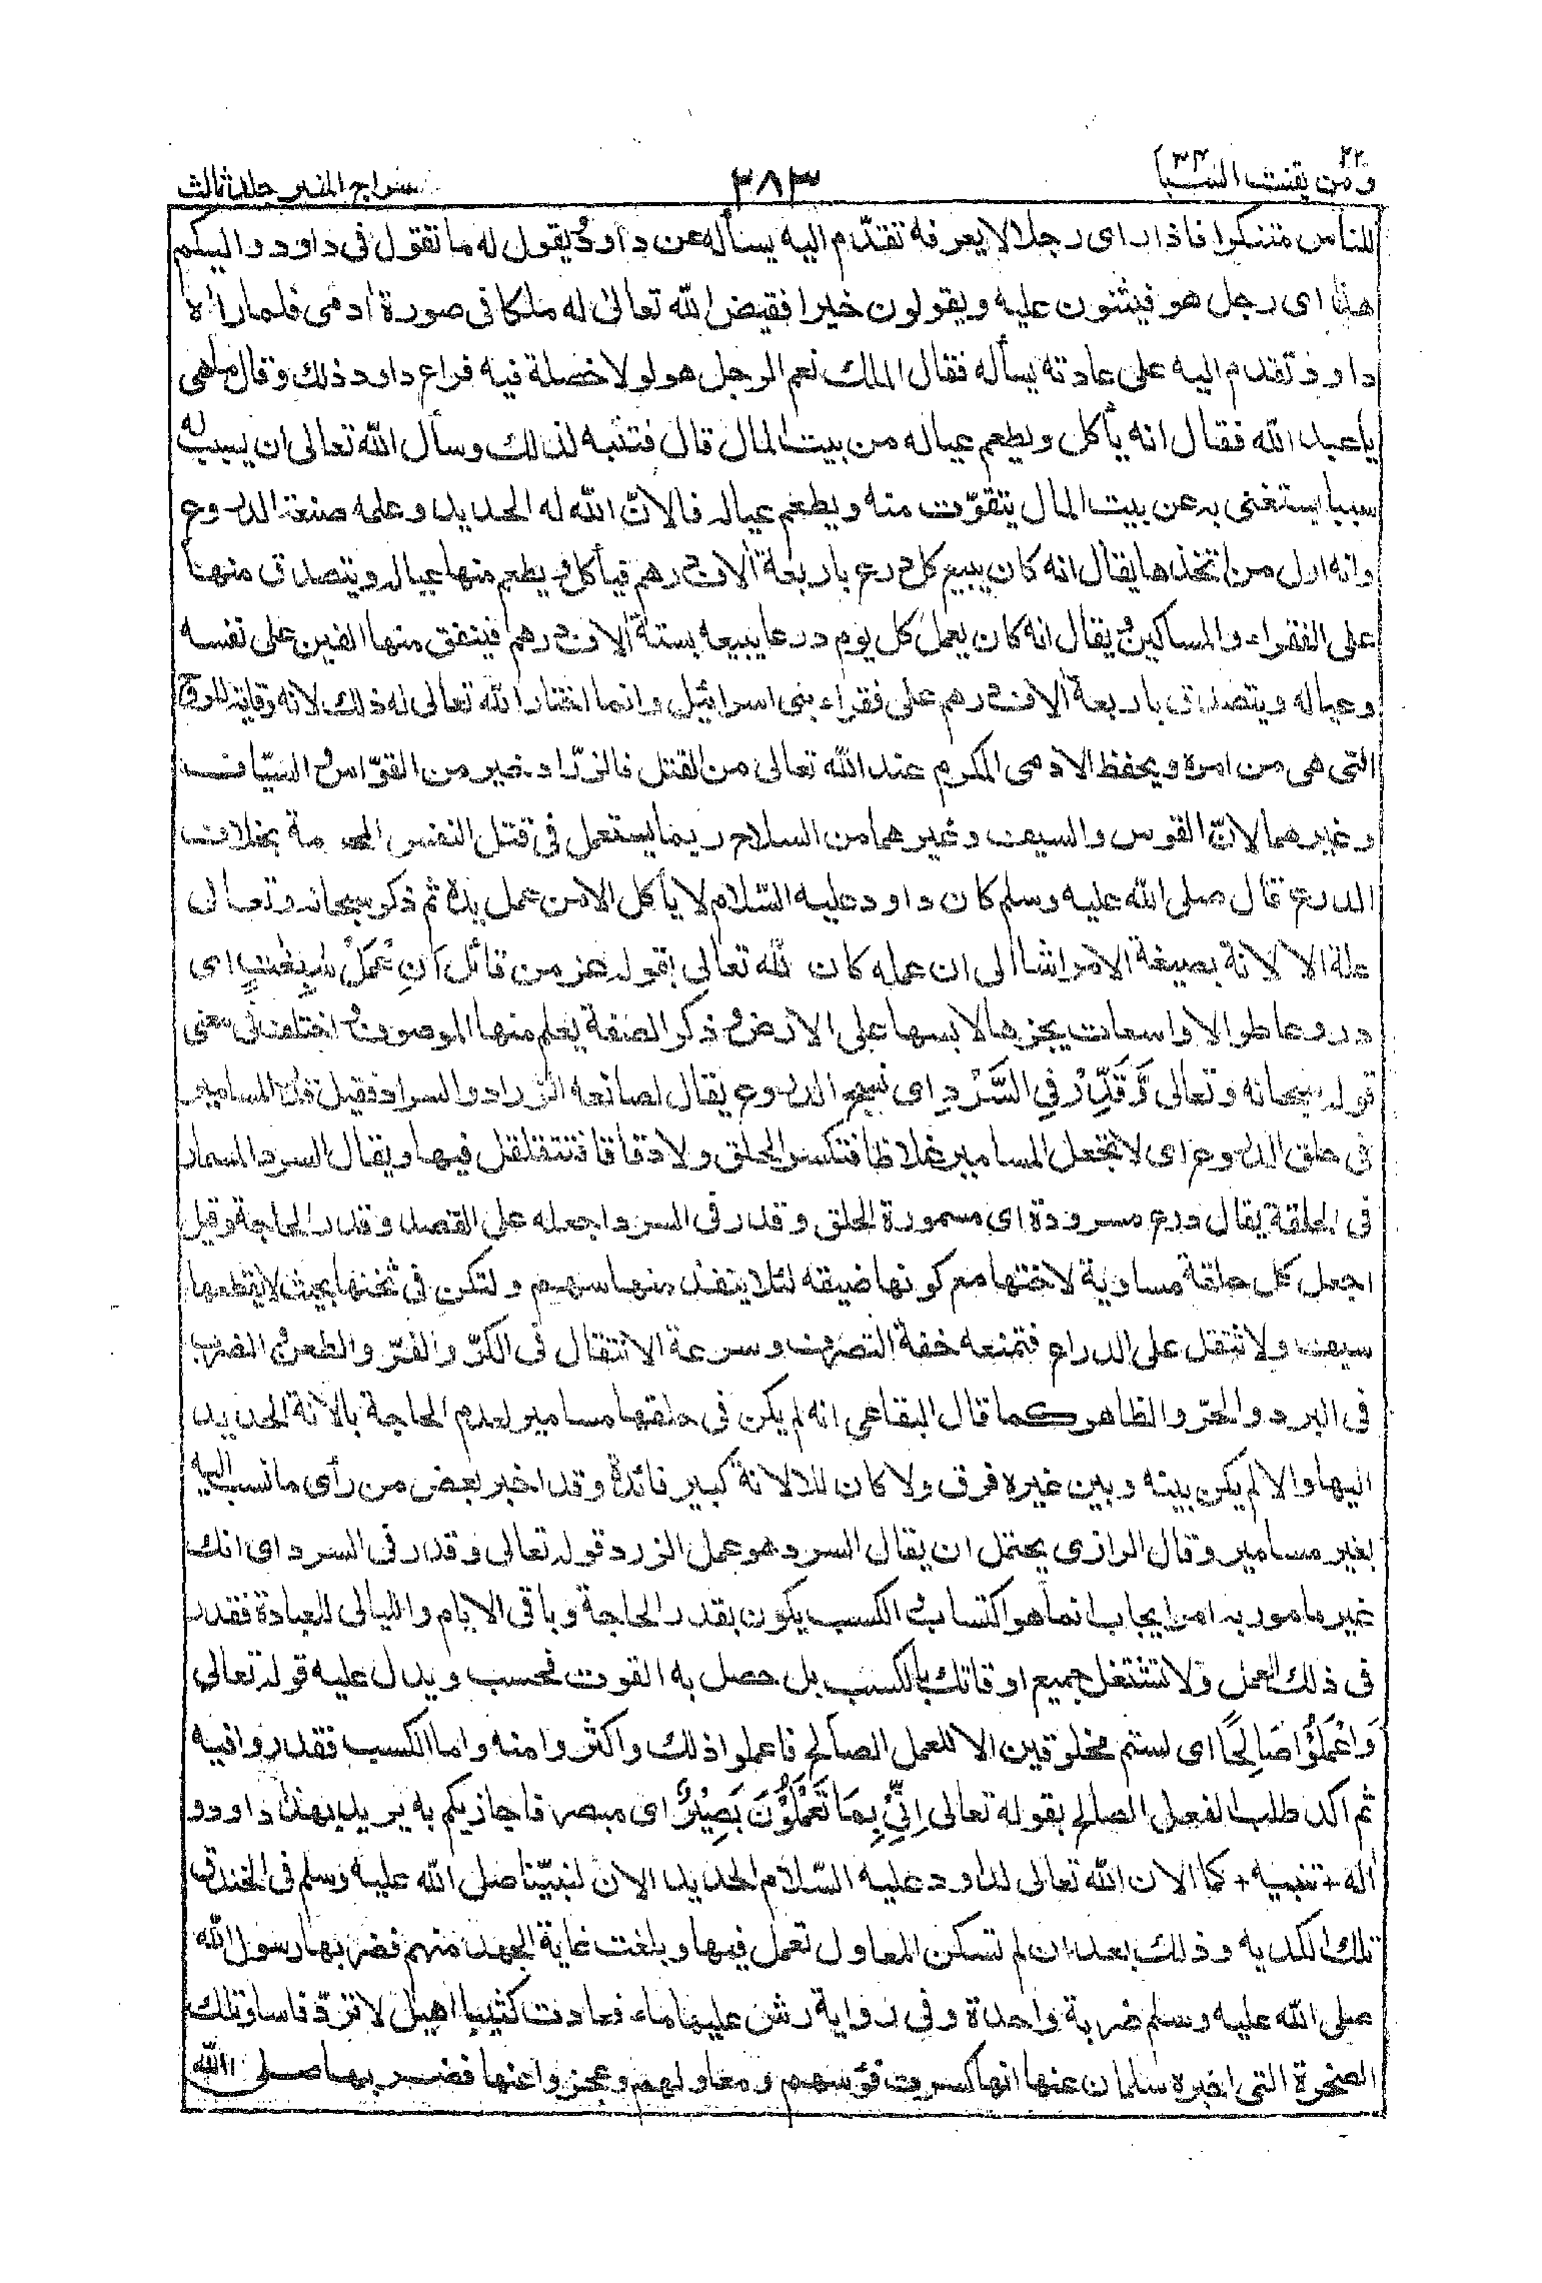 ومن يقنت ٢٢ السبا ٣٤
٣٨٣
سراج المنير جلد ثالث
للناس متنكرا فاذا رأى رجلا لا يعرفه تقدّم اليه يسأله عن داود يقول له ما تقول فى داود واليكم
هذا اى رجل هو فيثنون عليه ويقولون خيرا فقيض الله تعالى له ملكا فى صورة ادمى فلما راٰه
داود تقدم اليه على عادته يسأله فقال الملك نعم الرجل هو لولا خصلة فيه فراع داود ذلك وقال ما هى
يا عبد الله فقال انه يأكل ويطعم عياله من بيت المال قال فتنبه لذلك وسأل الله تعالى ان يسبب له
سببا يستغنى به عن بيت المال يتقوّت منه ويطعم عياله فالانّ الله له الحديد وعلمه صنعة الدروع
وانه اول من اتخذها يقال انه كان يبيع كل درع باربعة اٰلاف درهم فيأكل ويطعم منها عياله ويتصدق منها
على الفقراء والمساكين ويقال انه كان يعمل كل يوم درعا يبيعه بستة اٰلاف درهم فينفق منها الفين على نفسه
وعياله ويتصدق باربعة اٰلاف درهم على فقراء بنى اسرائيل وانما اختار الله تعالى له ذلك لانه وقاية للروح
التى هى من امره ويحفظ الادمى المكرم عند الله تعالى من القتل فالزرّاد خير من القوّاس والسيّاف
وغيرهما لانّ القوس والسيف وغيرهما من السلاح ربما يستعمل فى قتل النفس المحرمة بخلاف
الدرع قال صلى الله عليه وسلم كان داود عليه السّلام لا يأكل الا من عمل يده ثم ذكر سبحانه وتعالى
علة الالانة بصيغة الامر اشارة الى ان عمله كان لله تعالى بقوله عز من قائل اَنِ عْمَلْ سٰبِغٰتٍ اى
دروعا طوالا واسعات يجرها لابسها على الارض وذكر الصفة يعلم منها الموصوف واختلف فى معنى
قوله سبحانه وتعالى وَّقَدِّرْ فِي السَّرْدِ اى نسج الدروع يقال لصانعه الزراد والسراد فقيل قدر المسامير
فى حلق الدروع اى لا تجعل المسامير غلاظا فتكسر الحلق ولا دقاقا فتتقلقل فيها ويقال السرد المسمار
فى الحلقة يقال درع مسرودة اى مسمورة الحلق وقدر فى السرد اجعله على القصد وقدر الحاجة وقيل
اجعل كل حلقة مساوية لاختها مع كونها ضيقه لئلا ينفذ منها سهم ولتكن فى ثخنها بحيث لا يقطعها
سيف ولا تثقل على الدراع فتمنعه خفة التصرف وسرعة الانتقال فى الكرّ والفرّ والطعن والضرب
فى البرد والحرّ والظاهر كما قال البقاعى انه لم يكن فى حلقها مسامير لعدم الحاجة بالانة الحديد
اليها والا لم يكن بينه وبين غيره فرق ولا كان للالانة كبير فائدة وقد اخبر بعض من رأى ما نسب اليه
بغير مسامير وقال الرازى يحتمل ان يقال السرد هو عمل الزرد قوله تعالى وقدر فى السرد اى انك
غير مامور به امر ايجاب انما هو اكتساب والكسب يكون بقدر الحاجة وباقى الايام والليالى للعبادة فقدر
فى ذلك العمل ولا تشتغل جميع اوقاتك بالكسب بل حصل به القوت فحسب ويدل عليه قوله تعالى
وَاعْمَلُوْا صَالِحًا اى لستم مخلوقين الا للعمل الصالح فاعملوا ذلك واكثروا منه واما الكسب فقدروا فيه
ثم اكد طلب الفعل الصالح بقوله تعالى اِنِّىْ بِمَا تَعْمَلُوْنَ بَصِيْرٌ اى مبصر فاجازيكم به يريد بهذا داود و
اٰله + تنبيه + كما الان الله تعالى لداود عليه السّلام الحديد الان لنبيّنا صلى الله عليه وسلم فى الخندق
تلك الكديه وذلك بعد ان لم تسكن المعاول تعمل فيها وبلغت غاية الجهد منهم فضربها رسول الله
صلى الله عليه وسلم ضربة واحدة وفى رواية رش عليها ماء فعادت كثيبا اهيل لا تردّ فاسا وتلك
الصخرة التى اخبره سلمان عنها انها كسرت فؤسهم ومعاولهم وعجزوا عنها فضربها صلى الله